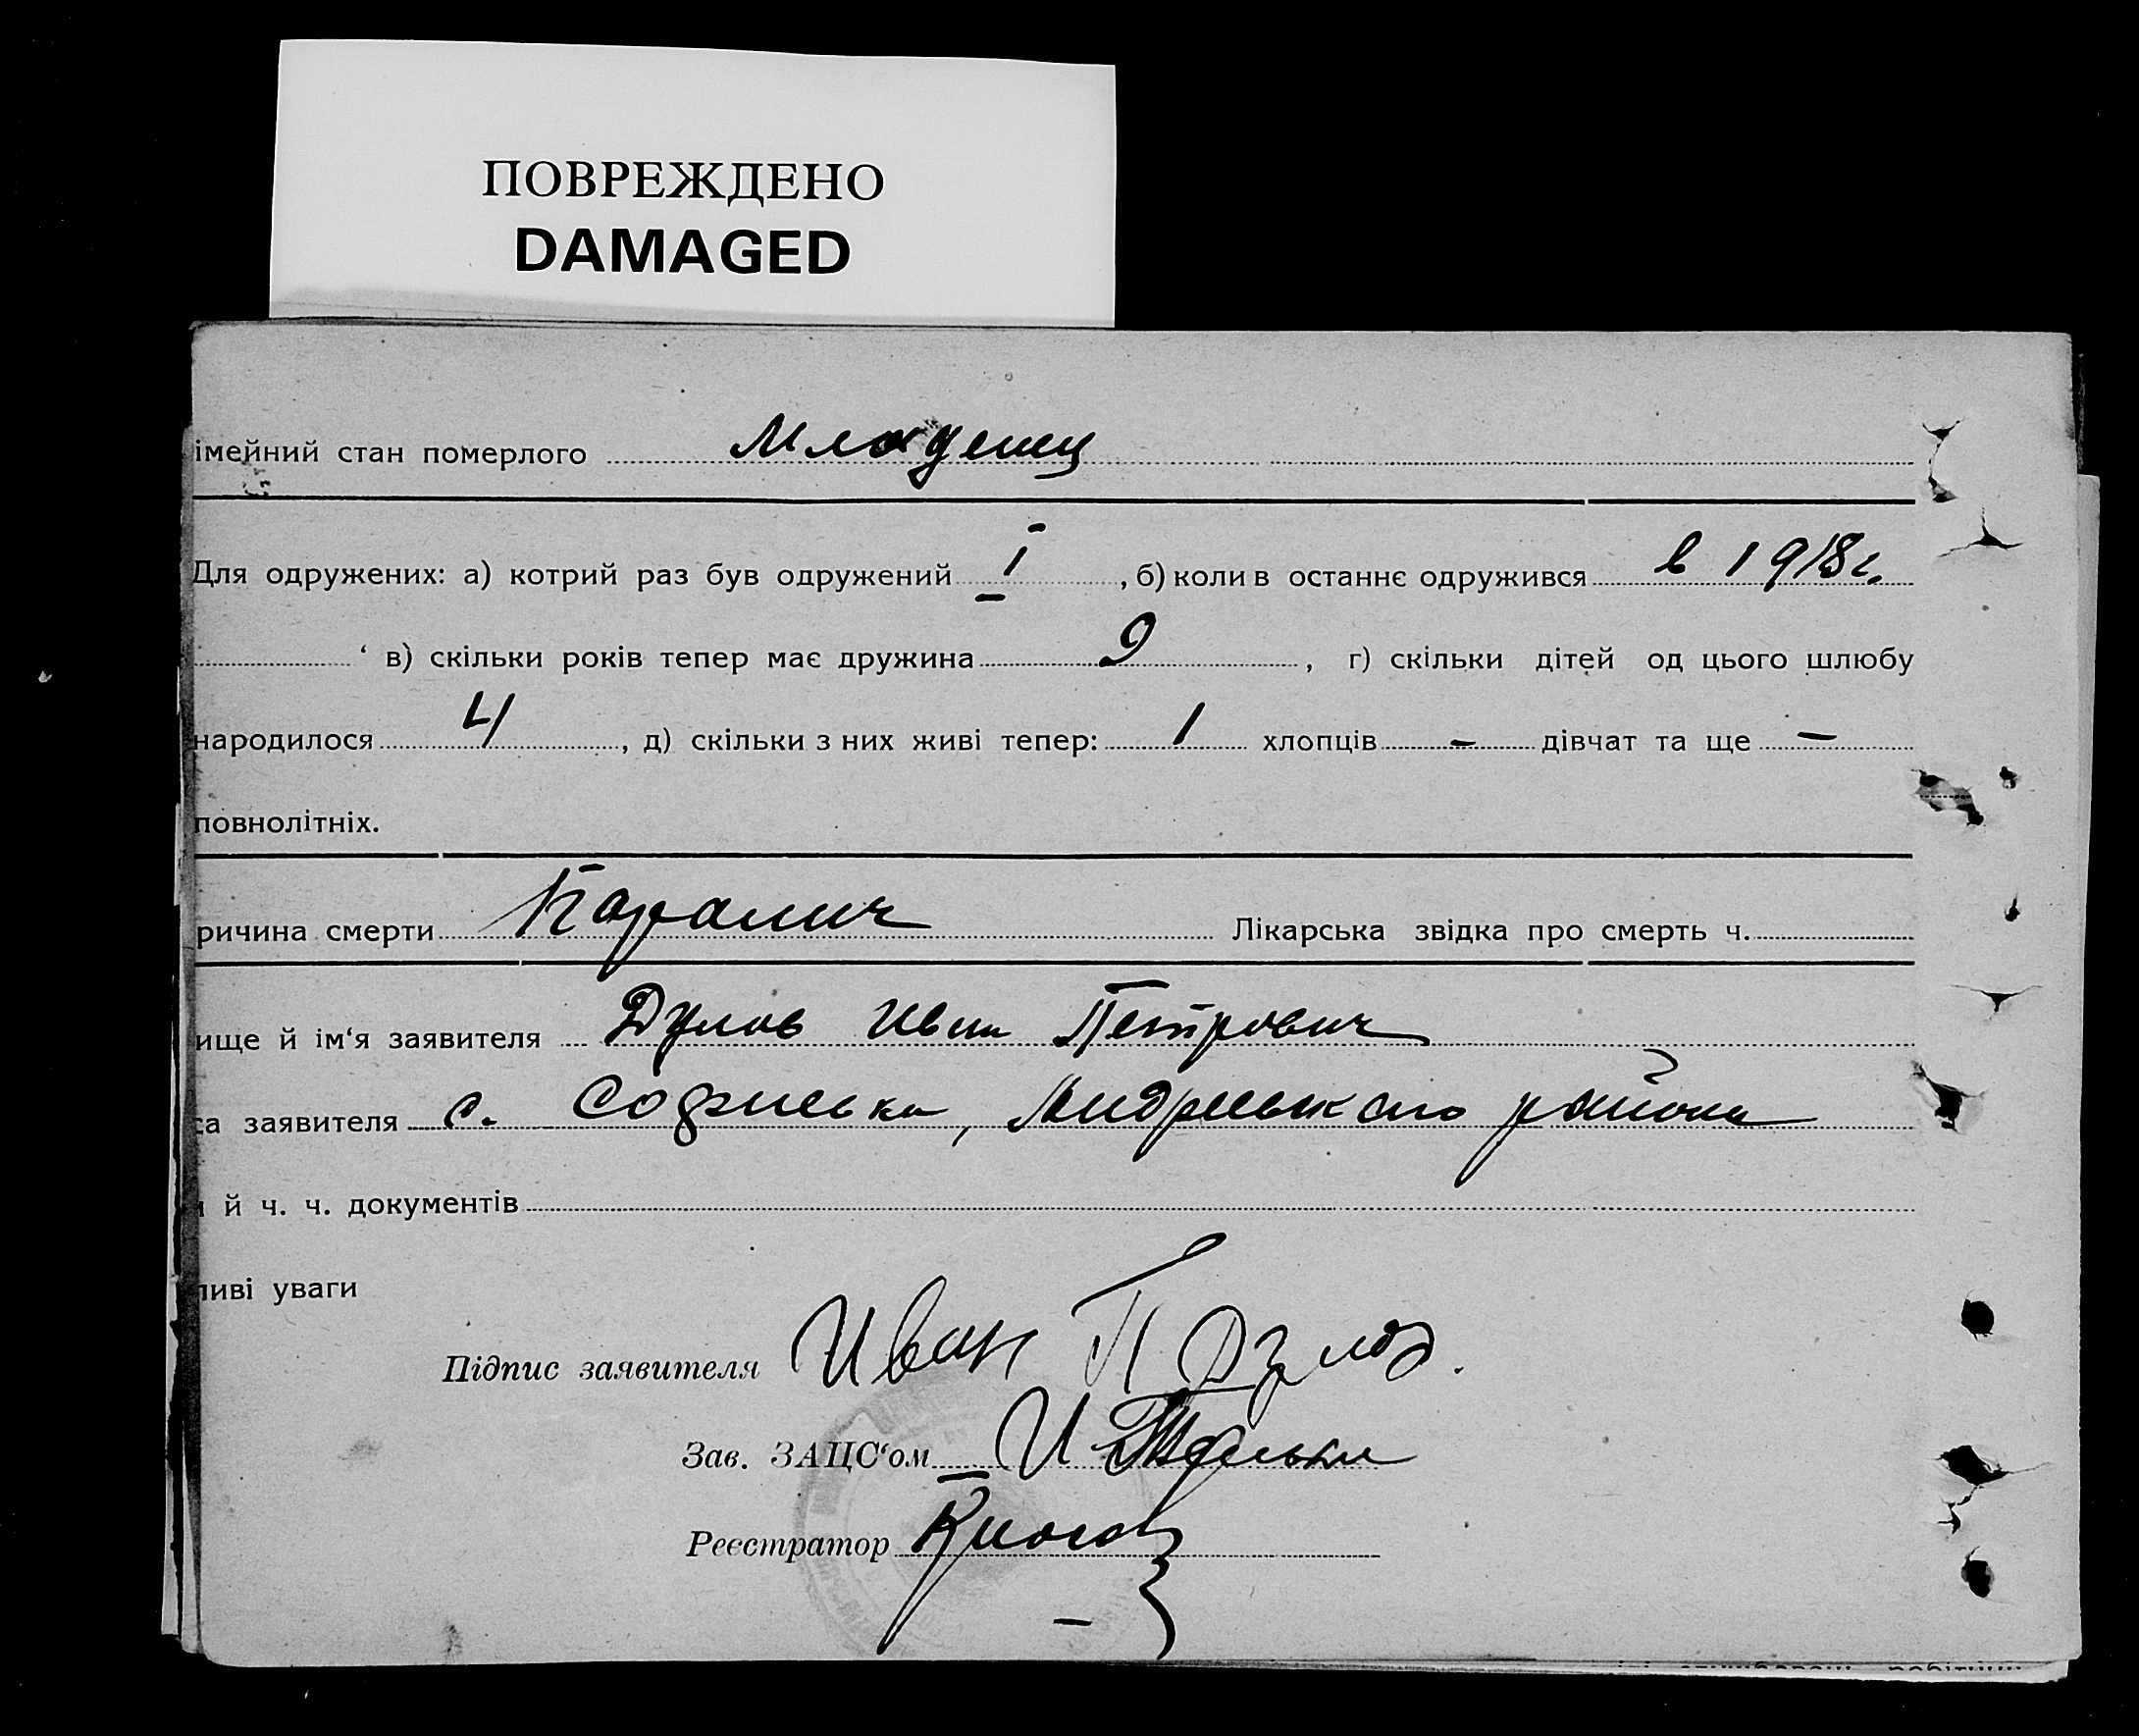 ПОВРЕЖДЕНО
DAMAGED
імейний стан померлого Младенец
Для одружених: а) котрий раз був одружений I, б) коли в останнє одружився в 1918 г.
‘ в) скільки років тепер має дружина 9, г) скільки дітей од цього шлюбу
народилося 4, д) скільки з них живі тепер: 1 хлопців – дівчат та ще –
повнолітніх.
ричина смерти Паралич Лікарська звідка про смерть ч.
ище й ім‘я заявителя Дулов Иван Петрович
са заявителя с. Софиевка, Андреевского района
й ч. ч. документів
ливі уваги
Підпис заявителя Иван П Дулов.
Зав. ЗАЦС‘ом И
Реєстратор